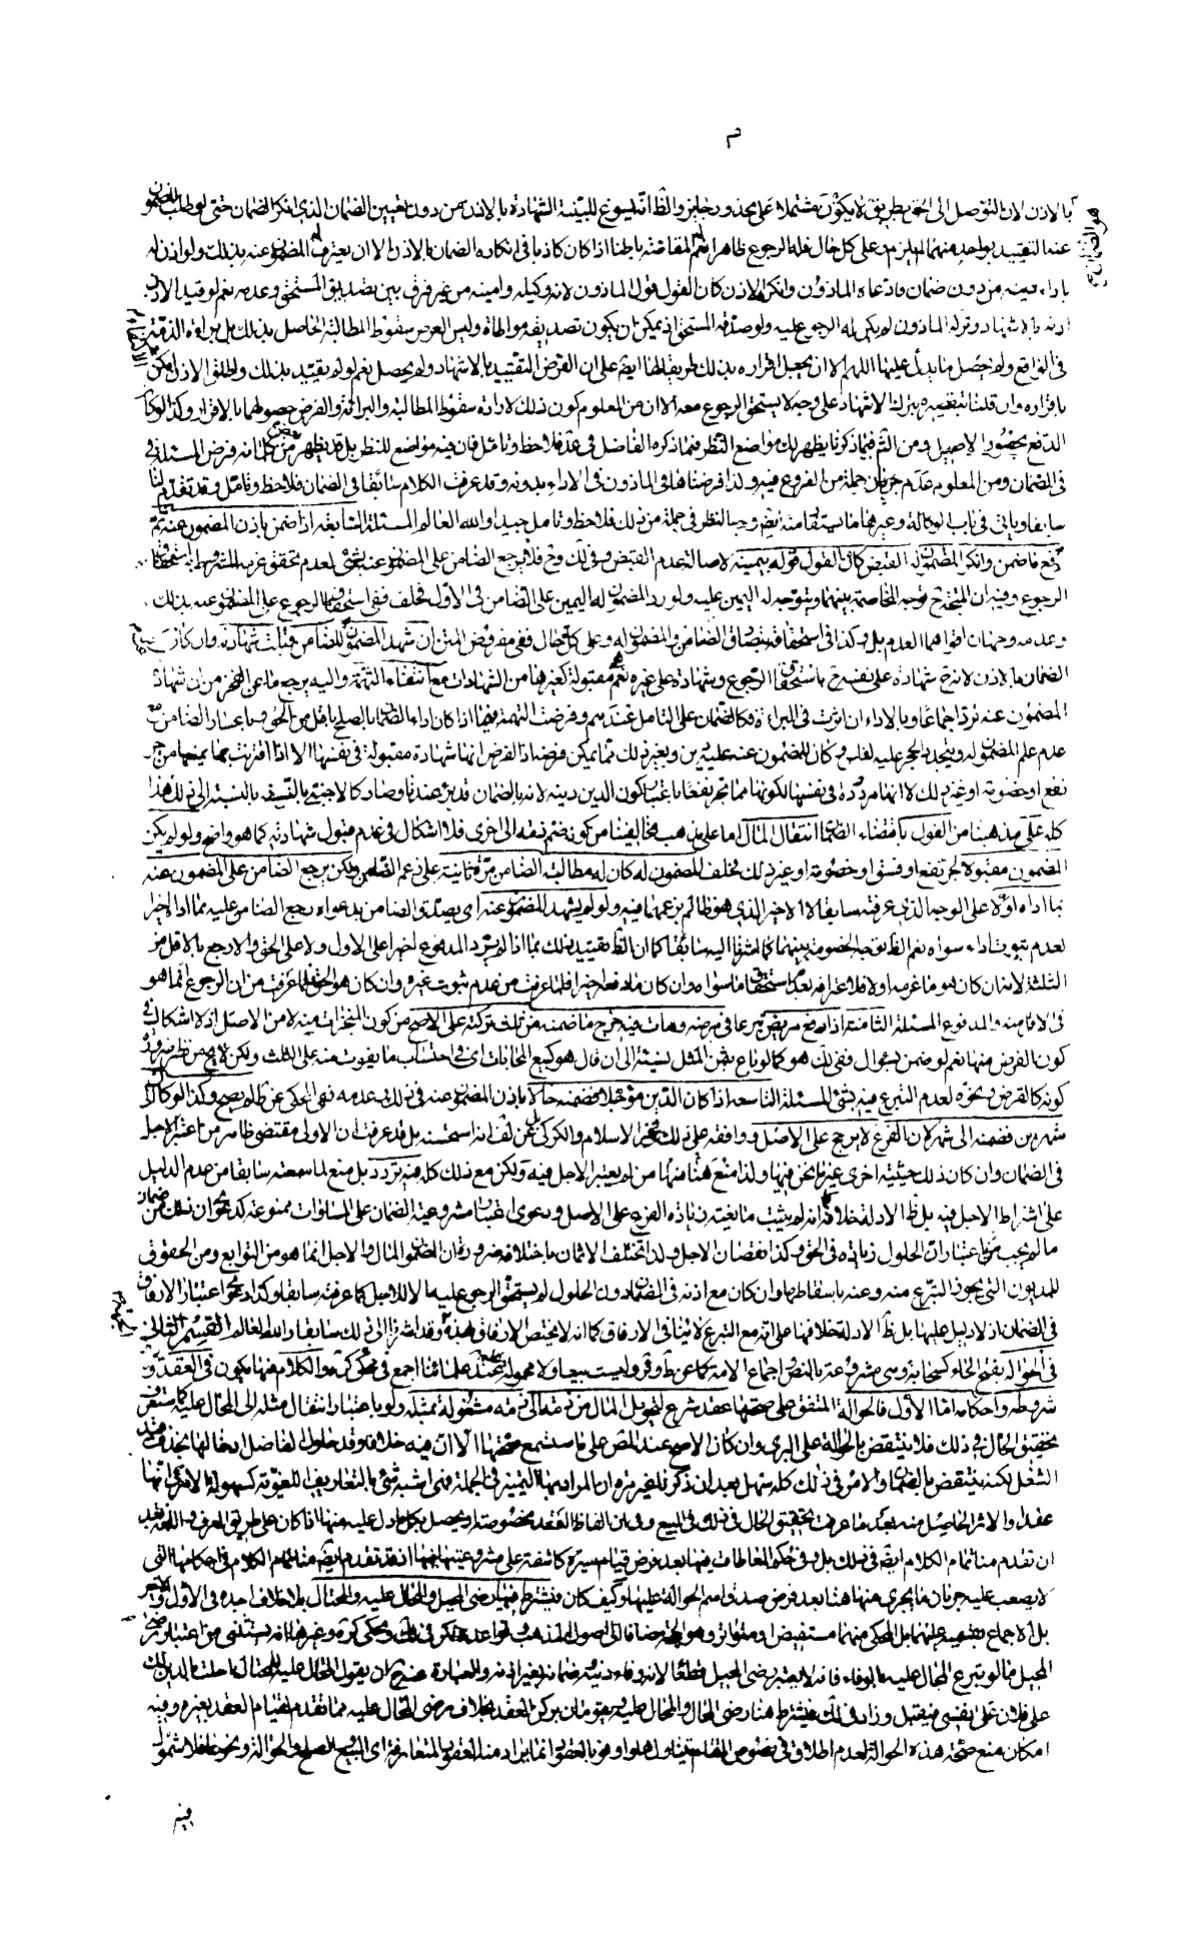 بالاذن لان التوصل الى الحق بطريق لا يكون مشتملا على محذور جايز والظ انه ليسوغ للبينة الشهادة بالاذن من دون تعيين الضمان الذى انكر الضمان حتى لو طلب المضمون
عنه التقييد بواحد منهما لم يلزم وعلى كل حال فله الرجوع ظاهرا نعم له المقاصة باطنا اذا كان كاذبا فى انكاره الضمان بالاذن الا ان يعترف له المضمون عنه بذلك ولو اذن له
باداء دينه من دون ضمان فادعاه الماذون وانكر الاذن كان القول قول الماذون لانه وكيله وامينه من غير فرق بين تصديق المستحق وعدمه نعم لو قيد الاذن
اذنه بالاشهاد وتركه الماذون لم يكن له الرجوع عليه ولو صدقه المستحق اذ يمكن ان يكون تصديقه مواطاة وليس الغرض سقوط المطالبة الحاصل بذلك بل براءة الذمة
فى الواقع ولم يحصل ما يدل عليها اللهم الا ان يجعل اقراره بذلك طريقا لها ايضا على ان الفرض التقييد بالاشهاد ولم يحصل نعم لو لم يقيد بذلك واطلق الاذن امكن
باقراره وان قلنا بتقصيره بترك الاشهاد على وجه لا يستحق الرجوع معه الا ان من المعلوم كون ذلك لارادة سقوط المطالبة والبراءة والفرض حصولهما بالاقرار وكذا لو كان
الدفع بحضور الاصيل ومن التامل فيما ذكرنا يظهر لك مواضع النظر فيما ذكره الفاضل فى عد فلاحظ وتامل فان فيه مواضع للنظر بل قد يظهر من بعض
فى الضمان ومن المعلوم عدم جريان جملة من الفروع فيه ولذا فرضناها فى الماذون فى الاداء بدونه وقد عرفت الكلام سابقا فى الضمان فلاحظ وتامل وقد تقدم لنا
سابقا وياتى فى باب الوكالة وغيرها ما يستفاد منه ايضا وجه النظر فى جملة من ذلك فلاحظ وتامل جيدا والله العالم المسئلة السابعة اذا ضمن باذن المضمون عنه ثم
دفع ما ضمن وانكر المضمون له القبض كان القول قوله بيمينه لاصالة عدم القبض وفى لك وح فلا يرجع الضامن على المضمون عنه بشئ لعدم تحقق غرمه المشروط به استحقاق
الرجوع وفيه ان المتجه ح توجه المخاصمة بينهما ويتوجه له اليمين عليه ولو رد المضمون له اليمين على الضامن فى الاول فحلف ففى استحقاق الرجوع على المضمون عنه بذلك
وعدمه وجهان اقواهما العدم بل وكذا فى استحقاقه بتصادق الضامن والمضمون له وعلى كل حال ففى مفروض المتن ان شهد المضمون عنه للضامن قبلت شهادته وان كان
الضمان بالاذن لانه ح شهادة على نفسه باستحقاق الرجوع وشهادة على غيره نعم هى مقبولة كغيرها من الشهادات مع انتفاء التهمة واليه يرجع ما عن الفخر من ان شهادة
المضمون عنه ترد اجماعا وبالاداء ان اثرت فى البراءة فكالضمان على التامل عندهم وفرضت التهمة فيما اذا كان اداء الضامن بالصلح باقل من الحق وباعسار الضامن مع
عدم علم المضمون له وبتجدد الحجر عليه لفلس وكان للمضمون عنه عليه دين وبغير ذلك مما يمكن فرضه اذ الفرض انها شهادة مقبولة فى نفسها الا اذا اقترنت بما يمنعها من جر
نفع او خصومة او غير ذلك لا انها مردودة فى نفسها لكونها مما تجر نفعا باعتبار كون الدين دينه لانه بالضمان قد برئ عندنا وصار كالاجنبى بالنسبة الى ذلك هذا
كله على مذهبنا من القول باقتضاء الضمان انتقال المال اما على مذهب مخالفينا من كونه ضم ذمة الى اخرى فلا اشكال فى عدم قبول شهادته كما هو واضح ولو لم يكن
المضمون مقبولا لجر نفع او فسق او خصومة او غير ذلك فحلف المضمون له كان له مطالبة الضامن مرة ثانية على زعم الضامن ولكن يرجع الضامن على المضمون عنه
بما اداه اولا على الوجه الذى عرفته سابقا لا الاخير الذى هو ظالم بزعمهما فيه ولو لم يشهد المضمون عنه اى يصدق الضامن بدعواه رجع الضامن عليه بما اداه اخيرا
لعدم ثبوت اداء سواه نعم الظ توجه الخصومة بينهما كما اشرنا اليه سابقا كما ان الظ تقييد ذلك بما اذا لم يزد المدفوع اخيرا على الاول ولا على الحق والا رجع بالاقل من
الثلثة لانه ان كان هو ما غرمه اولا فلاعترافه بعدم استحقاق ما سواه وان كان ما دفعه اخيرا فلما عرفت من عدم ثبوت غيره وان كان هو الحق فلما عرفت من ان الرجوع انما هو
فى الاقل منه والمدفوع المسئلة الثامنة اذا ضمن مريض تبرعا فى مرضه ومات فيه خرج ما ضمنه من ثلث تركته على الاصح من كون المنجزات منه لا من الاصل اذ لا اشكال فى
كون الفرض منها نعم لو ضمن بسؤال ففى لك هو كما لو باع بثمن المثل نسيئة الى ان قال هو كبيع المحاباة اى فى احتساب ما يفوت منه على الثلث ولكن لا يخ من نظر ضرورة
كونه كالقرض ونحوه لعدم التبرع فيه بشئ المسئلة التاسعة اذا كان الدين مؤجلا فضمنه حالا باذن المضمون عنه فى ذلك وعدمه فعن المحكى عن ط لم يصح وكذا لو كان الى
شهرين فضمنه الى شهر لان الفرع لا يرجح على الاصل ووافقه على ذلك فخر الاسلام والكركى بل عن لف انه استحسنه بل قد عرفت ان الاولى مقتضى ظاهر من اعتبر الاجل
فى الضمان وان كان ذلك حيثية اخرى غير ما نحن فيها ولذا منع هنا منها من لم يعتبر الاجل فيه ولكن مع ذلك كله فيه تردد بل منع لما سمعته سابقا من عدم الدليل
على اشتراط الاجل فيه بل ظ الادلة خلافه كما انه لم يثبت مانعية زيادة الفرع على الاصل ودعوى اعتبار مشروعية الضمان على المساواة ممنوعة كدعوى ان ذلك من ضمان
ما لم يجب باعتبار ان الحلول زيادة فى الحق وكذا نقصان الاجل ولذا تختلف الاثمان باختلافه ضرورة ان المضمون المال والاجل انما هو من التوابع ومن الحقوق
للمديون التى يجوز التبرع منه وعنه باسقاطها وان كان مع اذنه فى الضمان دون الحلول لم يستحق الرجوع عليه حالا للاجل كما عرفته سابقا وكذا دعوى اعتبار الارفاق
فى الضمان اذ لا دليل عليها بل ظ الادلة خلافها على انه مع التبرع لا ينافى الارفاق كما انه لا يختص الارفاق بهذه وقد اشرنا الى ذلك سابقا والله العالم القسم الثانى
فى الحوالة بفتح الحاء كسحابة وهى مشروعة بالنص واجماع الامة كما عن ط وغيره وليست بيعا ولا محمولة عليه عند علمائنا اجمع فى محكى كره والكلام فيها يكون فى العقد وفى
شروطه واحكامه اما الاول فالحوالة المتفق على صحتها عقد شرع لتحويل المال من ذمة الى ذمة مشغولة بمثله ولو باعتبار انتقال مثله الى المحال عليه كما ستعرف
تحقيق الحال فى ذلك فلا ينتقض بالحوالة على البرى وان كان الاصح عند المص على ما ستسمع صحتها الا ان فيه خلافا وقد حاول الفاضل ادخالها بحذف قيد
الشغل لكنه ينتقض بالضمان والامر فى ذلك كله سهل بعد ان ذكرنا غير مرة ان المراد بها التمييز فى الجملة فهى اشبه شئ بالتعاريف اللغوية كسهولة الامر فى انها
عقد او الاثر الحاصل منه بعد ما عرفت تحقيق الحال فى ذلك فى البيع وفى ان الفاظ العقد مخصوصة او يحصل بكل ما دل عليه منها اذا كان على طريق العرف واللغة بعد
ان تقدم منا تمام الكلام ايضا فى ذلك بل وفى حكم المعاطات فيها بعد فرض قيام سيرة كاشفة على مشروعيتها فيها اذ قد تقدم ايضا منا تمام الكلام فى احكامها التى
لا يصعب عليه جريان ما يجرى منها هنا بعد فرض صدق اسم الحوالة عليها وكيف كان فيشترط فيها رضى المحيل والمحال عليه والمحتال بلا خلاف اجده فى الاول والاخير
بل الاجماع بقسميه عليهما بل المحكى منهما مستفيض او متواتر وهو الحجة مضافا الى اصول المذهب وقواعده لكن فى لك ومحكى كره وغيرهما انه يستثنى من اعتبار رضى
المحيل ما لو تبرع المحال عليه بالوفاء فانه لا يعتبر رضى المحيل قطعا لانه وفاء دينه وضمانه بغير اذنه والعبارة عنه ح ان يقول المحال عليه للمحتال احلت بالدين الذى لك
على فلان على نفسى فيقبل وزاد فى لك فيشترط هنا رضى المحتال والمحال عليه ويقومان بركن العقد بخلاف رضى المحال عليه فيما تقدم لقيام العقد بغيره وفيه
امكان منع صحة هذه الحوالة لعدم اطلاق فى نصوص المقام يتناول لها واوفوا بالعقود انما يراد منه العقود المتعارفة اى البيع والصلح والحوالة ونحوها فلا شمول
فيه